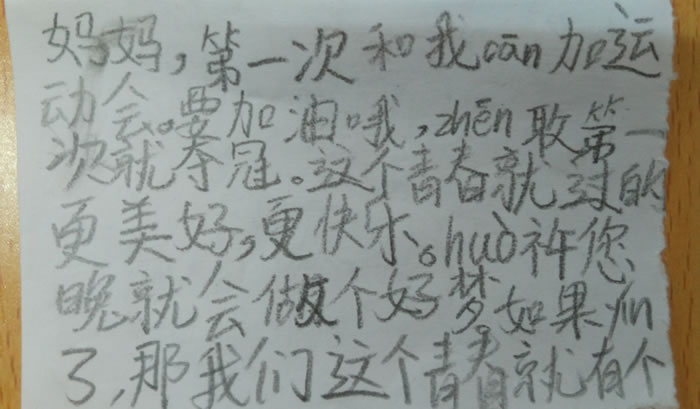 妈妈,第一次和我cān加运
动会。要加油哦,zhēn取第一
次就夺冠。这个青春就过的
更美好,更快乐。huò许您
晚就会做个好梦。如果
了,那我们这个青春就有个